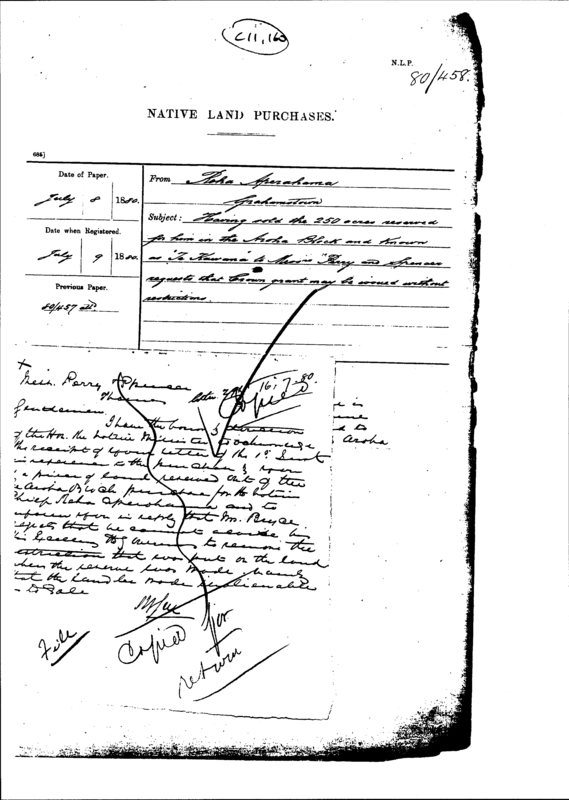 C11,163
N.L.P.
80/458.
NATIVE LAND PURCHASES.
Date of Paper.
July 8 1880.
Date when Registered.
July 9 1880.
Previous Paper.
80/457
From Reha Aperahama
Grahamstown
Subject: Having sold the 250 acres reserved
for him in the Aroha Block and known
as "Te Kawana" to Messrs Perry and Spencer
requests that Crown grant may be issued without
restrictions.
16.7.80
Copied
Perry & Spencer
Thames
Gentlemen
I have the honor by direction
of the Hon. the Native Minister to acknowledge
the receipt of your letter of the 1st
in reference to the purchase by you
a piece of land reserved out of the
Aroha Block purchase for the Native
Chief Reha Aperahama and to
inform you in reply that Mr. Bryce
regrets that he cannot advise his
Excellency the Governor to remove the
restriction that was put on the land
when the reserve was made namely
that the land be made inalienable
Aroha
File
Copied for
return